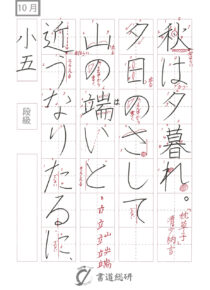 10月
秋は夕暮れ。
夕日のさして
山の端いと
近うなりたるに、
小五
段級
は
「枕草子」
清少納言
書道総研